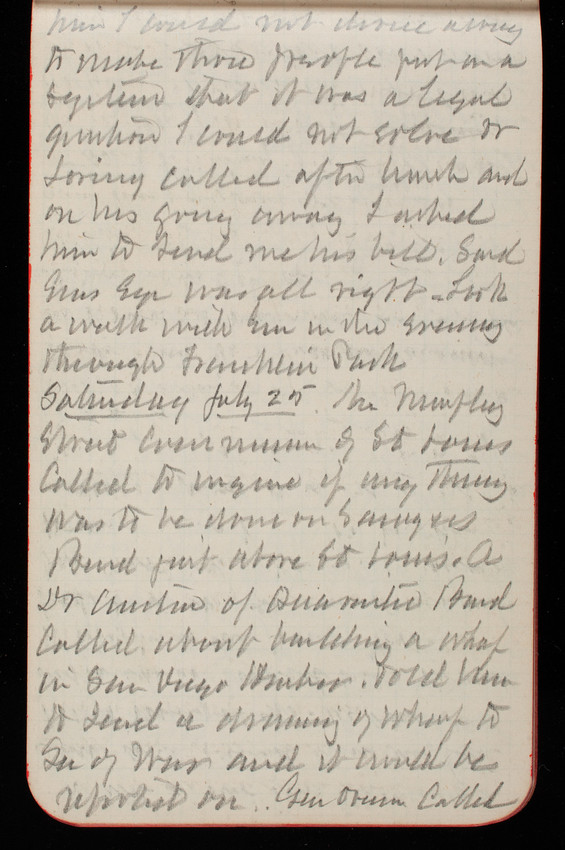 him I could not drive away
to make those people put in a
system that it was a legal
question I could not solve Dr
Loring called after lunch and
on his going away I asked
him to send me his bill. Said
Ems Eye was all right. Took
a walk with Em in the evening
through Franklin Park
Saturday July 25. Mr Murphy
Street Commissioner of St Louis
Called to inquire if any thing
was to be done on Sawyers
Bend just above St Louis. A
Dr Austin of Quarantine Board
Called about building a wharf
in San Diego Harbor. Told him
to send a drawing of wharf to
Sec of War and it would be
reported on. Gen Drum Called